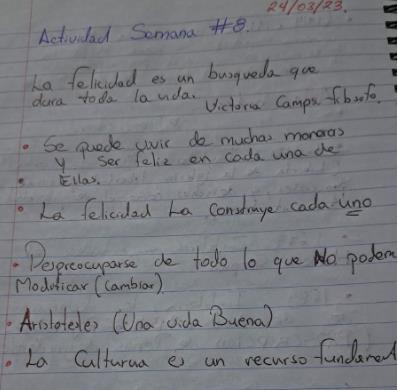 24/03/23.
Actividad Semana #8.
La felicidad es un busqueda que
dura toda la vida. Victoria Camps. filosofo.
• Se puede vivir de muchas maneras
y ser feliz en cada una de
• Ellas.
• La felicidad La Construye cada uno
• Despreocuparse de todo lo que No podem
Modificar (Cambiar)
• Aristoteles (Una vida Buena)
• La Culturua es un recurso fundament